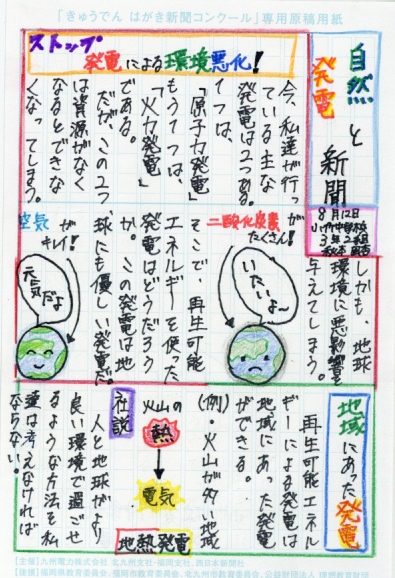 「きゅうでん はがき新聞コンクール」専用原稿用紙
自然と
発電
新聞
8月12日
3年2組
ストップ
発電による環境悪化！
今、私達が行っ
ている主な
発電は2つある。
1つは、
「原子力発電」
もう1つは、
「火力発電」
である。
だが、この2つ
は資源がなく
なるとできな
くなってしまう。
しかも、地球
環境に悪影響を
与えてしまう。
二酸化炭素が
たくさん！
いたいよ〜
そこで、再生可能
エネルギーを使った
発電はどうだろう
か。この発電は地
球にも優しい発電だ。
空気が
キレイ！
元気だよ
地域にあった発電
再生可能エネル
ギーによる発電は
地域にあった発電
ができる。
(例)・火山が多い地域
火山の
熱
電気
地熱発電
社説
人と地球がより
良い環境で過ごせ
るような方法を私
達は考えなければ
ならない。
【主催】九州電力株式会社 北九州支社・福岡支社、西日本新聞社
【後援】福岡県教育委員会、福岡市教育委員会、北九州市教育委員会、公益財団法人 理想教育財団